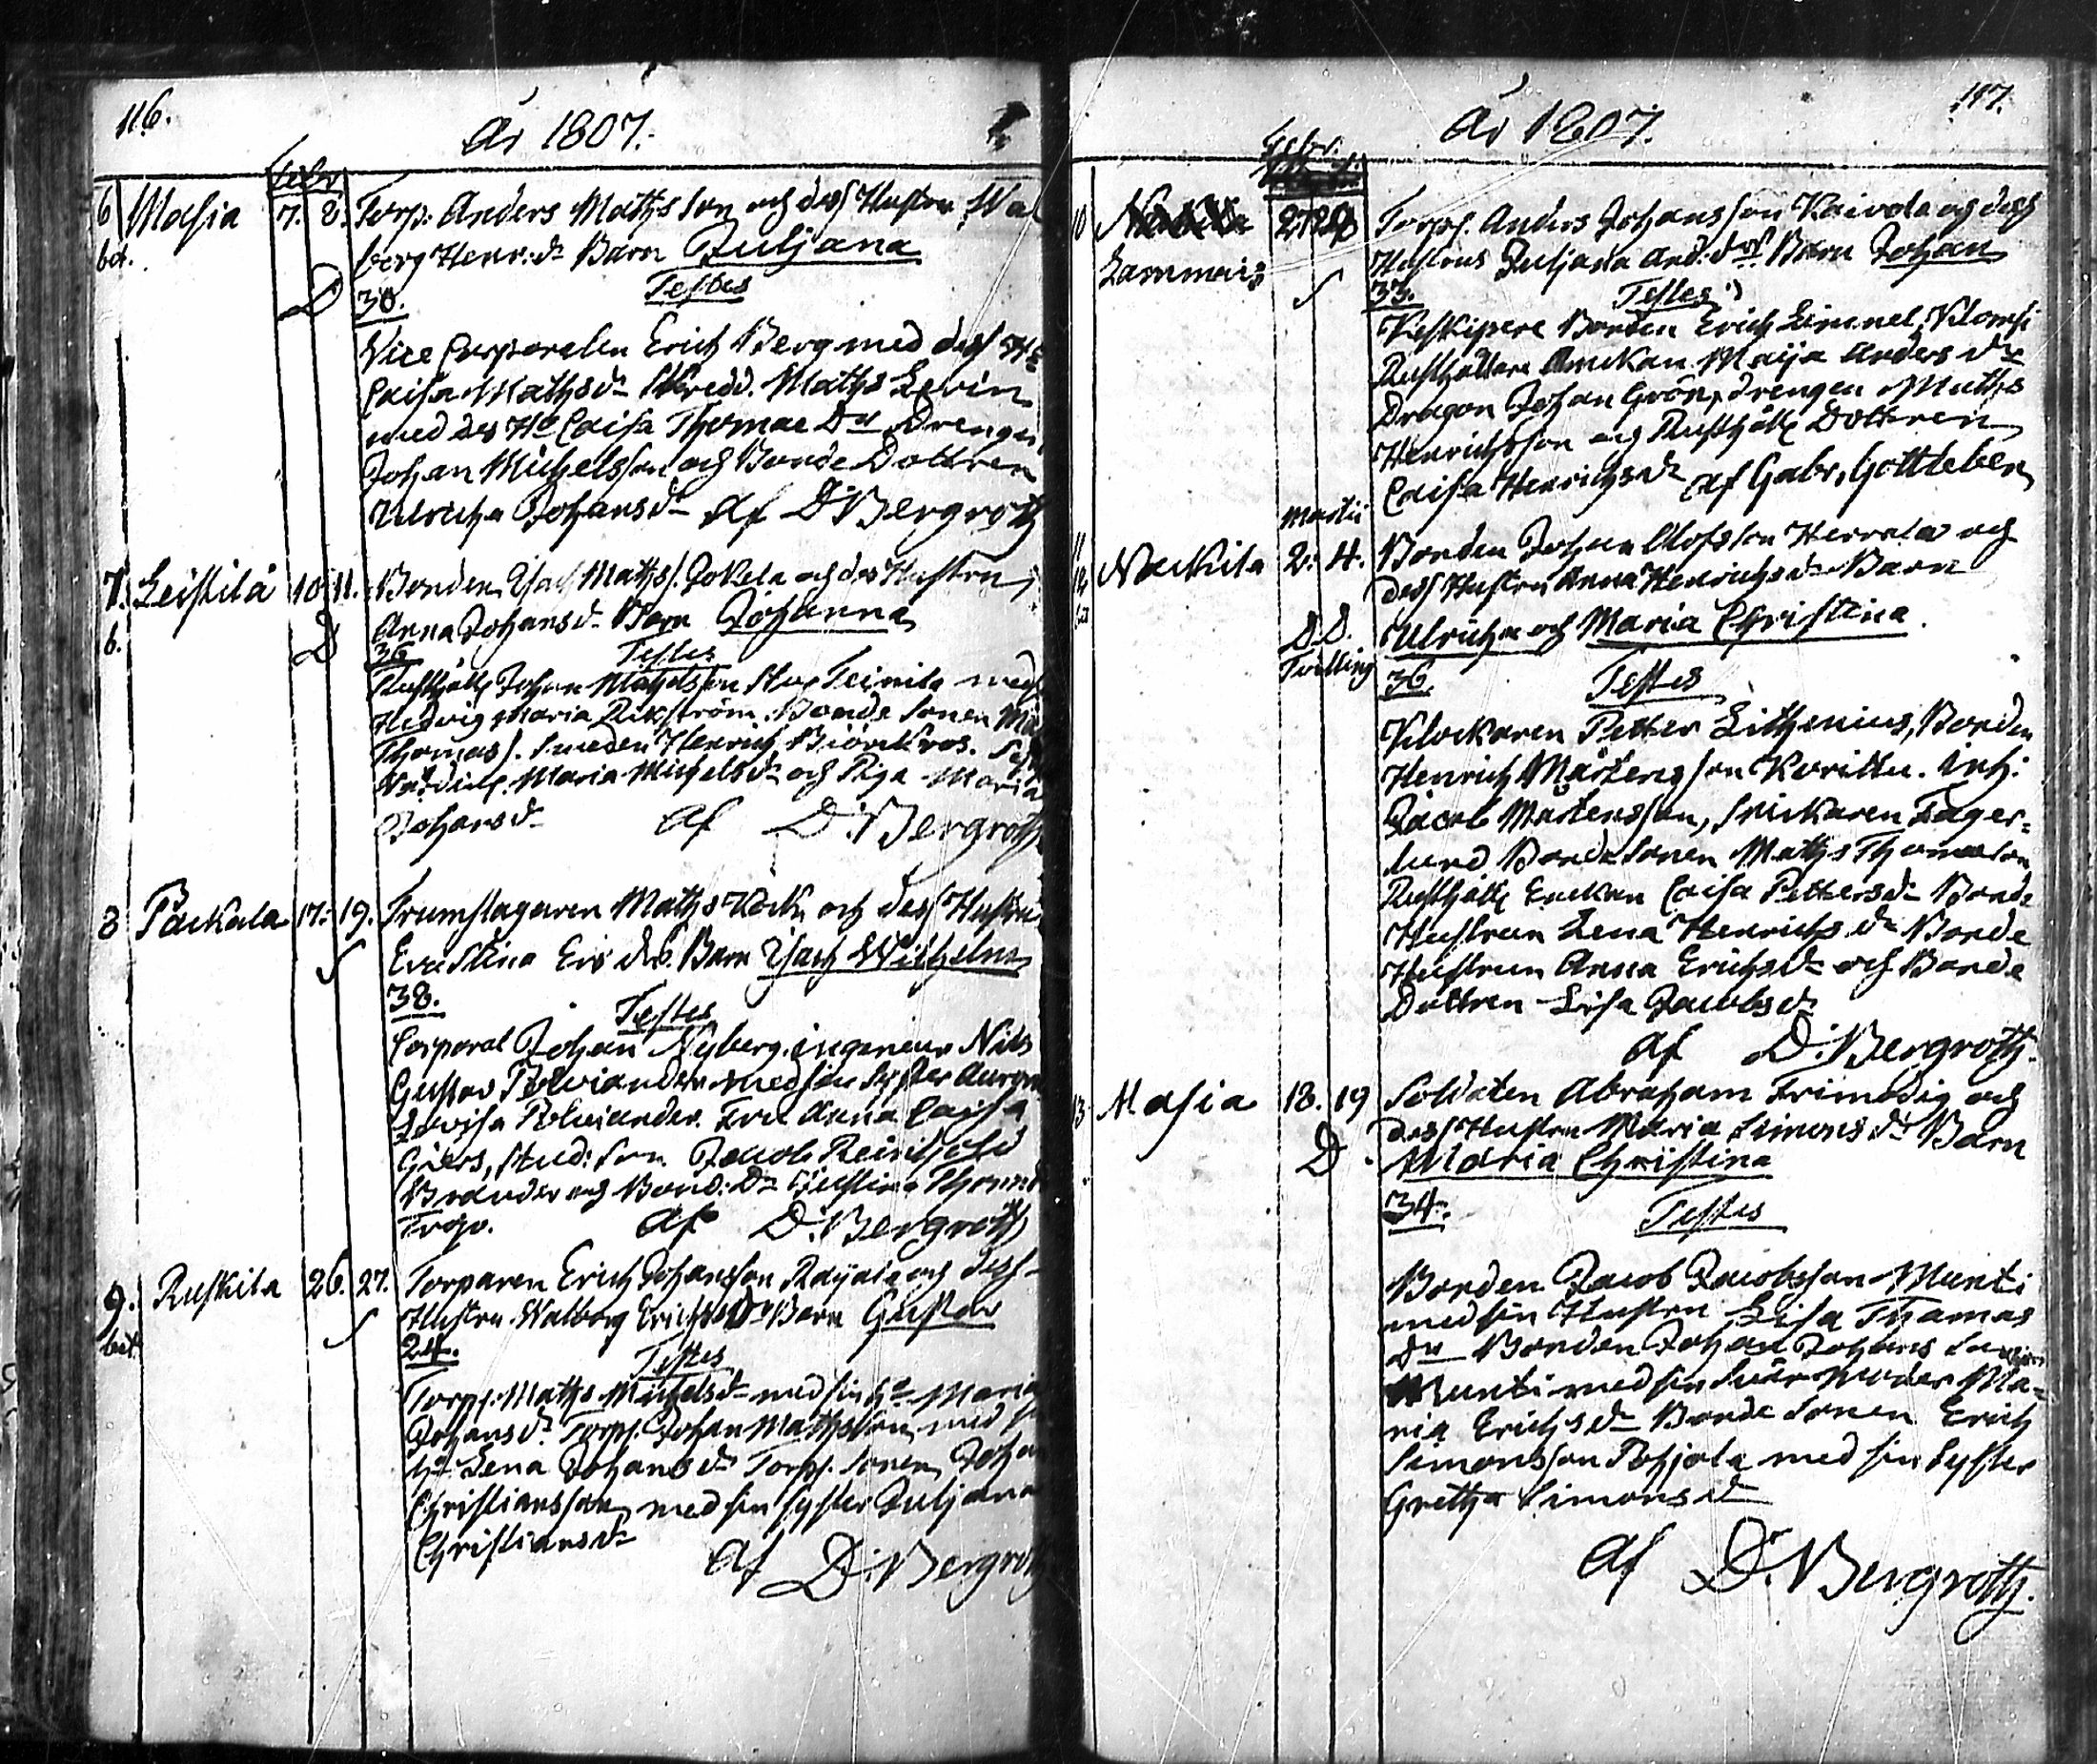 116.
År 1807.
Febr.
6 Masia 7. 8. Torp. Anders Mathsson och dess Hustru Wal
bet. berg Henr. dr Barn Juljana
D 30. Testes
Vice Corporalen Erich Berg med dess H:u
Caisa Mathsdr Maths Levin
med des Ho Caisa Thomae Dr Drengen
Johan Michelsson och Bonde Dottren
Ulricha Johansdr af D. Bergroth
7. Leistilä 10 11. Bonden Isac Mathss. Jokela och des Hustru
b. D Anna Johansdr Barn Johanna
36 Testes
Rusthåll. Johan Michelsson Teinilä med
Hedvig Maria Rikström. Bonde Sonen
Thomass. Smeden Henrich Biörckroos.
Maria Michelsdr och Piga Maria
Johansdr af D: Bergroth
8 Packala 17. 19. Trumslagaren Maths och dess Hustru
S Eva Stina Ers dr. Barn Isach Wilhelm
38. Testes
Corporal Johan Nyberg. ingeneur Nils
Gustav Polviander med sin Syster
Lovisa Polviander. Fru Anna Caisa
Giers, Stud: Jacob Reinhold
Brander och Bond: Dr Christina
Trojo. af D. Bergroth
9. Ruskila 26. 27. Torparen Erich Johansson Rajala och dess
bet. S Hustru Walborg Erichsdr Barn Gustav
24. Testes
Torp. Maths Michelsdr med sin ho Maria
Johansdr. Torp. Johan Mathsson med
ho Lena Johansdr Torp. Sonen Johan
Christiansson med sin syster Juljana
Christiansdr
af D: Bergroth
117.
År 1807.
Febr.
10 27 28 Torp. Anders Johansson Kaivola och dess
Lammais S Hustrus Juljana And. drs Barn Johan
33. Testes
Bonden Erich Limnel,
Rusthållare Enckan Maija Anders dr
Dragon Johan Grön, drengen Maths
Henrichsson och Rusthåll. Dottren
Caisa Henrichsdr af Gabr. Gottleben
Martii
11 12 Nackila 2. 4. Bonden Johan Olofsson Herrala och
dess Hustru Anna Henrichsdr Barn
D.D. Ulricha och Maria Christina.
Tvilling 36. Testes
Klockaren Petter Lithenius, Bonden
Henrich Mårtensson Korittu. Inh:
Jacob Martensson, Snickaren Fager=
lund Bonde Sonen Maths Thomasson
Rusthåll. Enckan Caisa Pettersdr Bonde
Hustrun Lena Henrichs dr Bonde
Hustrun Anna Erichsdr och Bonde
Dottren Lisa Jacobsdr
af D: Bergroth.
13 Masia 18. 19 Soldaten Abraham Frimodig och
dess Hustru Maria Simonsdr Barn
D. Maria Christina
34. Testes
Bonden Jacob Jacobsson Munti
med sin Hustru Lisa Thomas
Dr Bonden Johan Johans
Munti med sin Svär moder Ma=
ria Erichsdr Bonde Sonen Erich
Simonsson Pohjola med sin Syster
Gretha Simonsdr
af D: Bergroth.